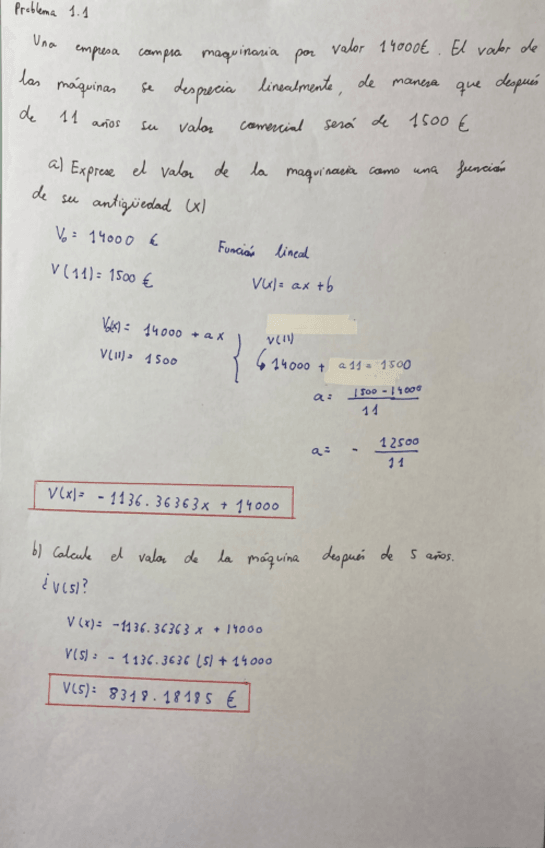 Problema 1.1
Una empresa compra maquinaria por valor 14000€. El valor de
las máquinas se desprecia linealmente, de manera que después
de 11 años su valor comercial será de 1500 €
a) Exprese el valor de la maquinaria como una función
de su antigüedad (x)
V₀ = 14000 €
Función lineal
V(11) = 1500 €
V(x) = ax + b
V₀(x) = 14000 + ax
V(11) = 1500
V(11)
↳ 14000 + a11 = 1500
a = 1500 - 14000 / 11
a = - 12500 / 11
V(x) = - 1136.36363x + 14000
b) Calcule el valor de la máquina después de 5 años.
¿V(5)?
V(x) = -1136.36363 x + 14000
V(5) = - 1136.3636 (5) + 14000
V(5) = 8318.18185 €